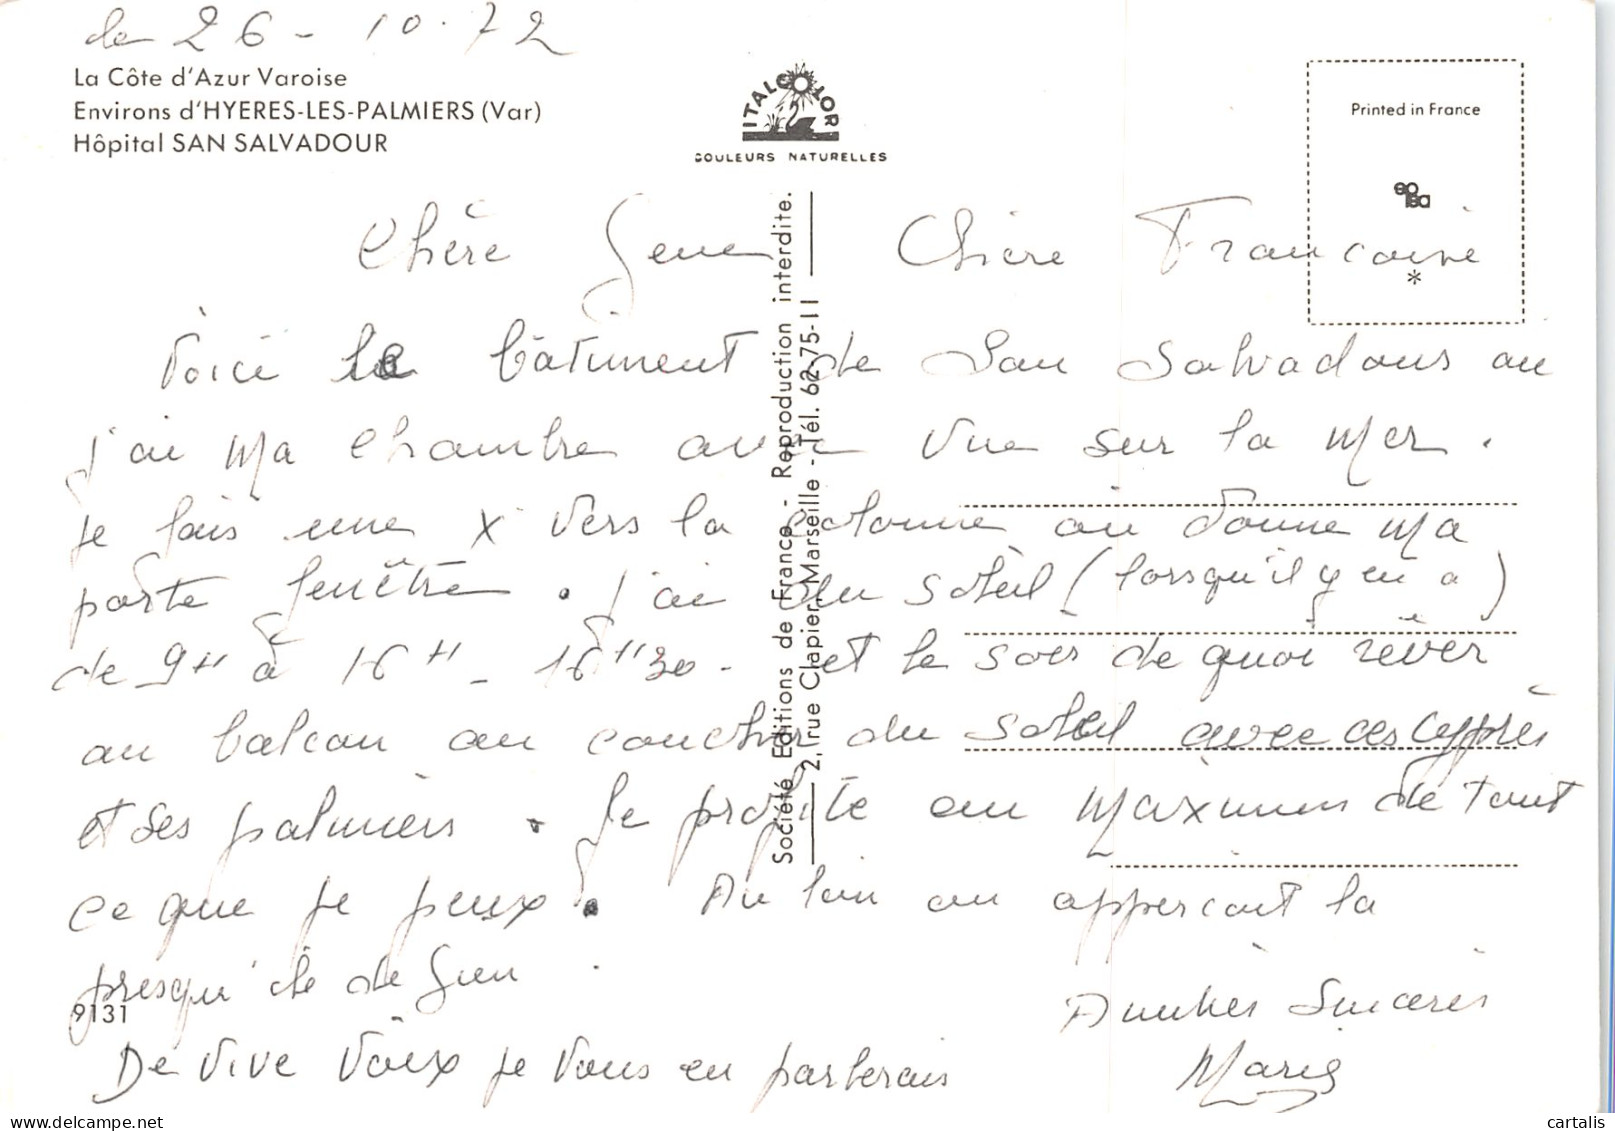 le 26 - 10.72
La Côte d'Azur Varoise
Environs d'HYERES-LES-PALMIERS (Var)
Hôpital SAN SALVADOUR
ITALCOLOR
COULEURS NATURELLES
Printed in France
Société Editions de France - Reproduction interdite.
2, rue Clapier, Marseille - Tél. 62-75-11
Chère Gene Chère Françoise
Voici le bâtiment de San Salvadour ou
j'ai ma chambre avec vue sur la mer.
je fais une X vers la colonne ou donne ma
porte fenêtre. j'ai du soleil (lorsqu'il y en a)
de 9H à 16H - 16H30 - et le soir de quoi rêver
au balcon au coucher du soleil avec ces cyprès
et ses palmiers. Je profite au maximum de tout
ce que je peux. Au loin on apperçoit la
presqu'île de Gien.
9131
Amitiés Sincères
De vive voix je vous en parlerais
Marie